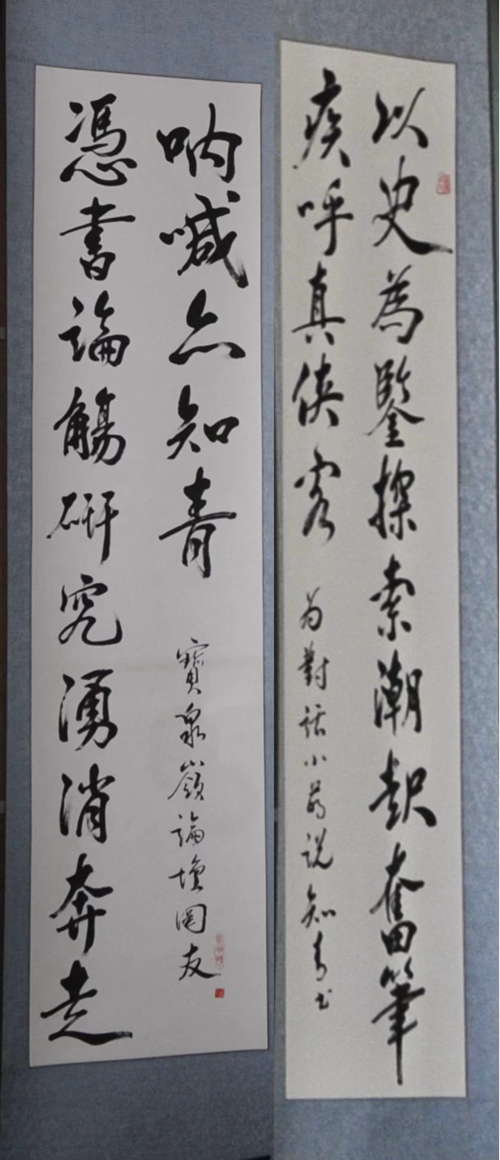 以史為鑒探索潮起奮筆
疾呼真侠客
为對話小说知青书
憑書論觴研究湧消奔走
呐喊亦知青
寶泉嶺論壇网友